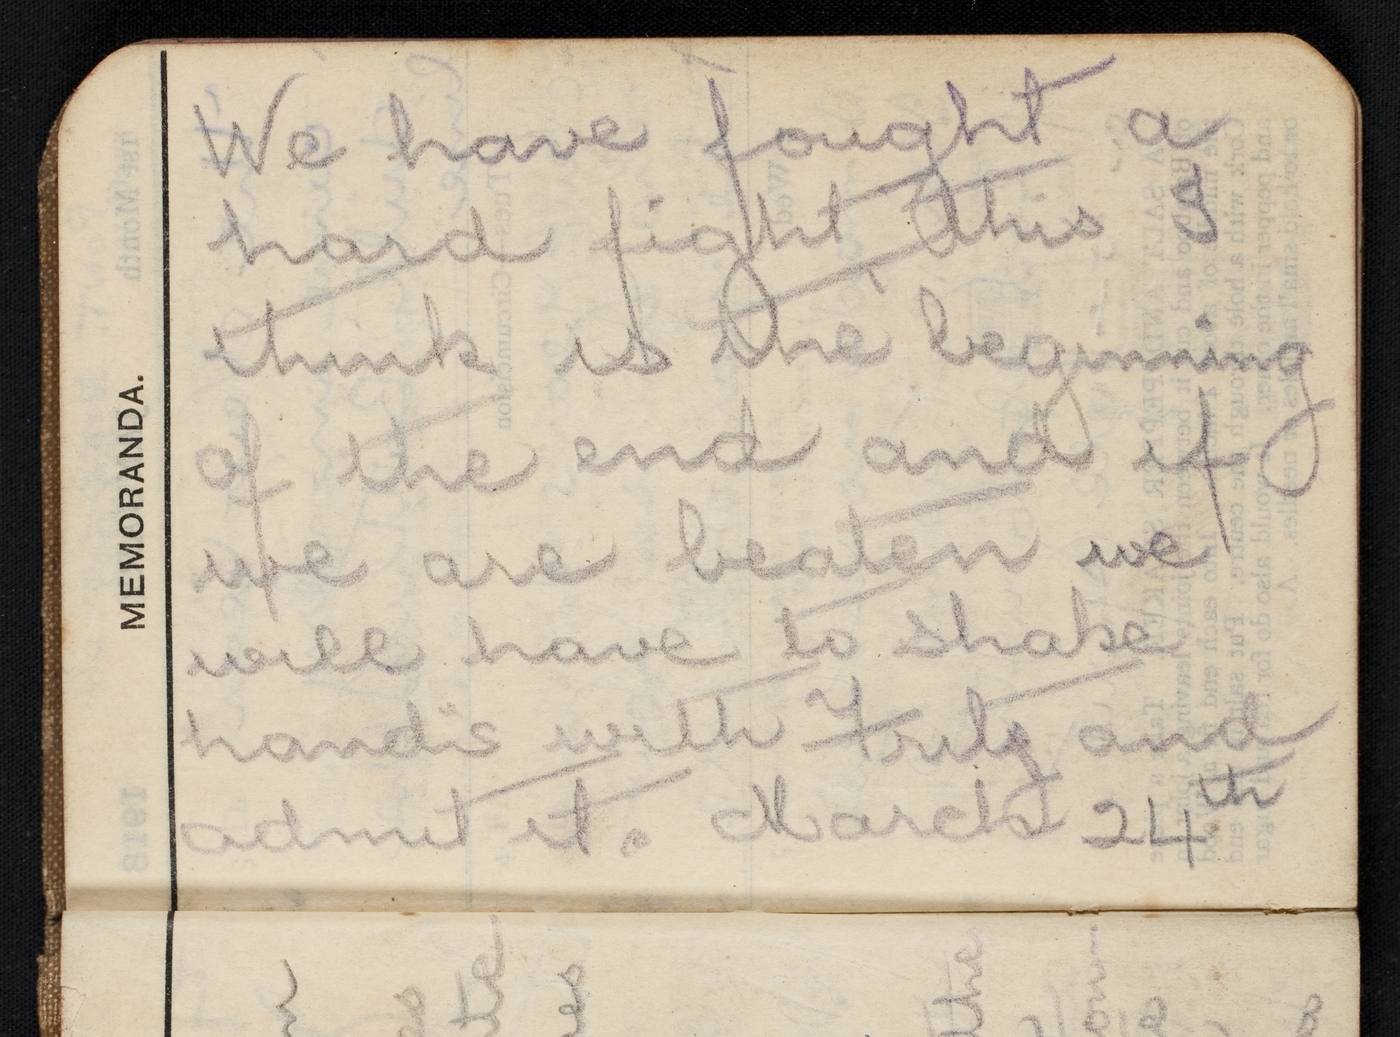 MEMORANDA.
We have fought a
hard fight this I
think is the beginning
of the end and if
we are beaten we
will have to shake
hands with Fritz and
admit it. March 24th